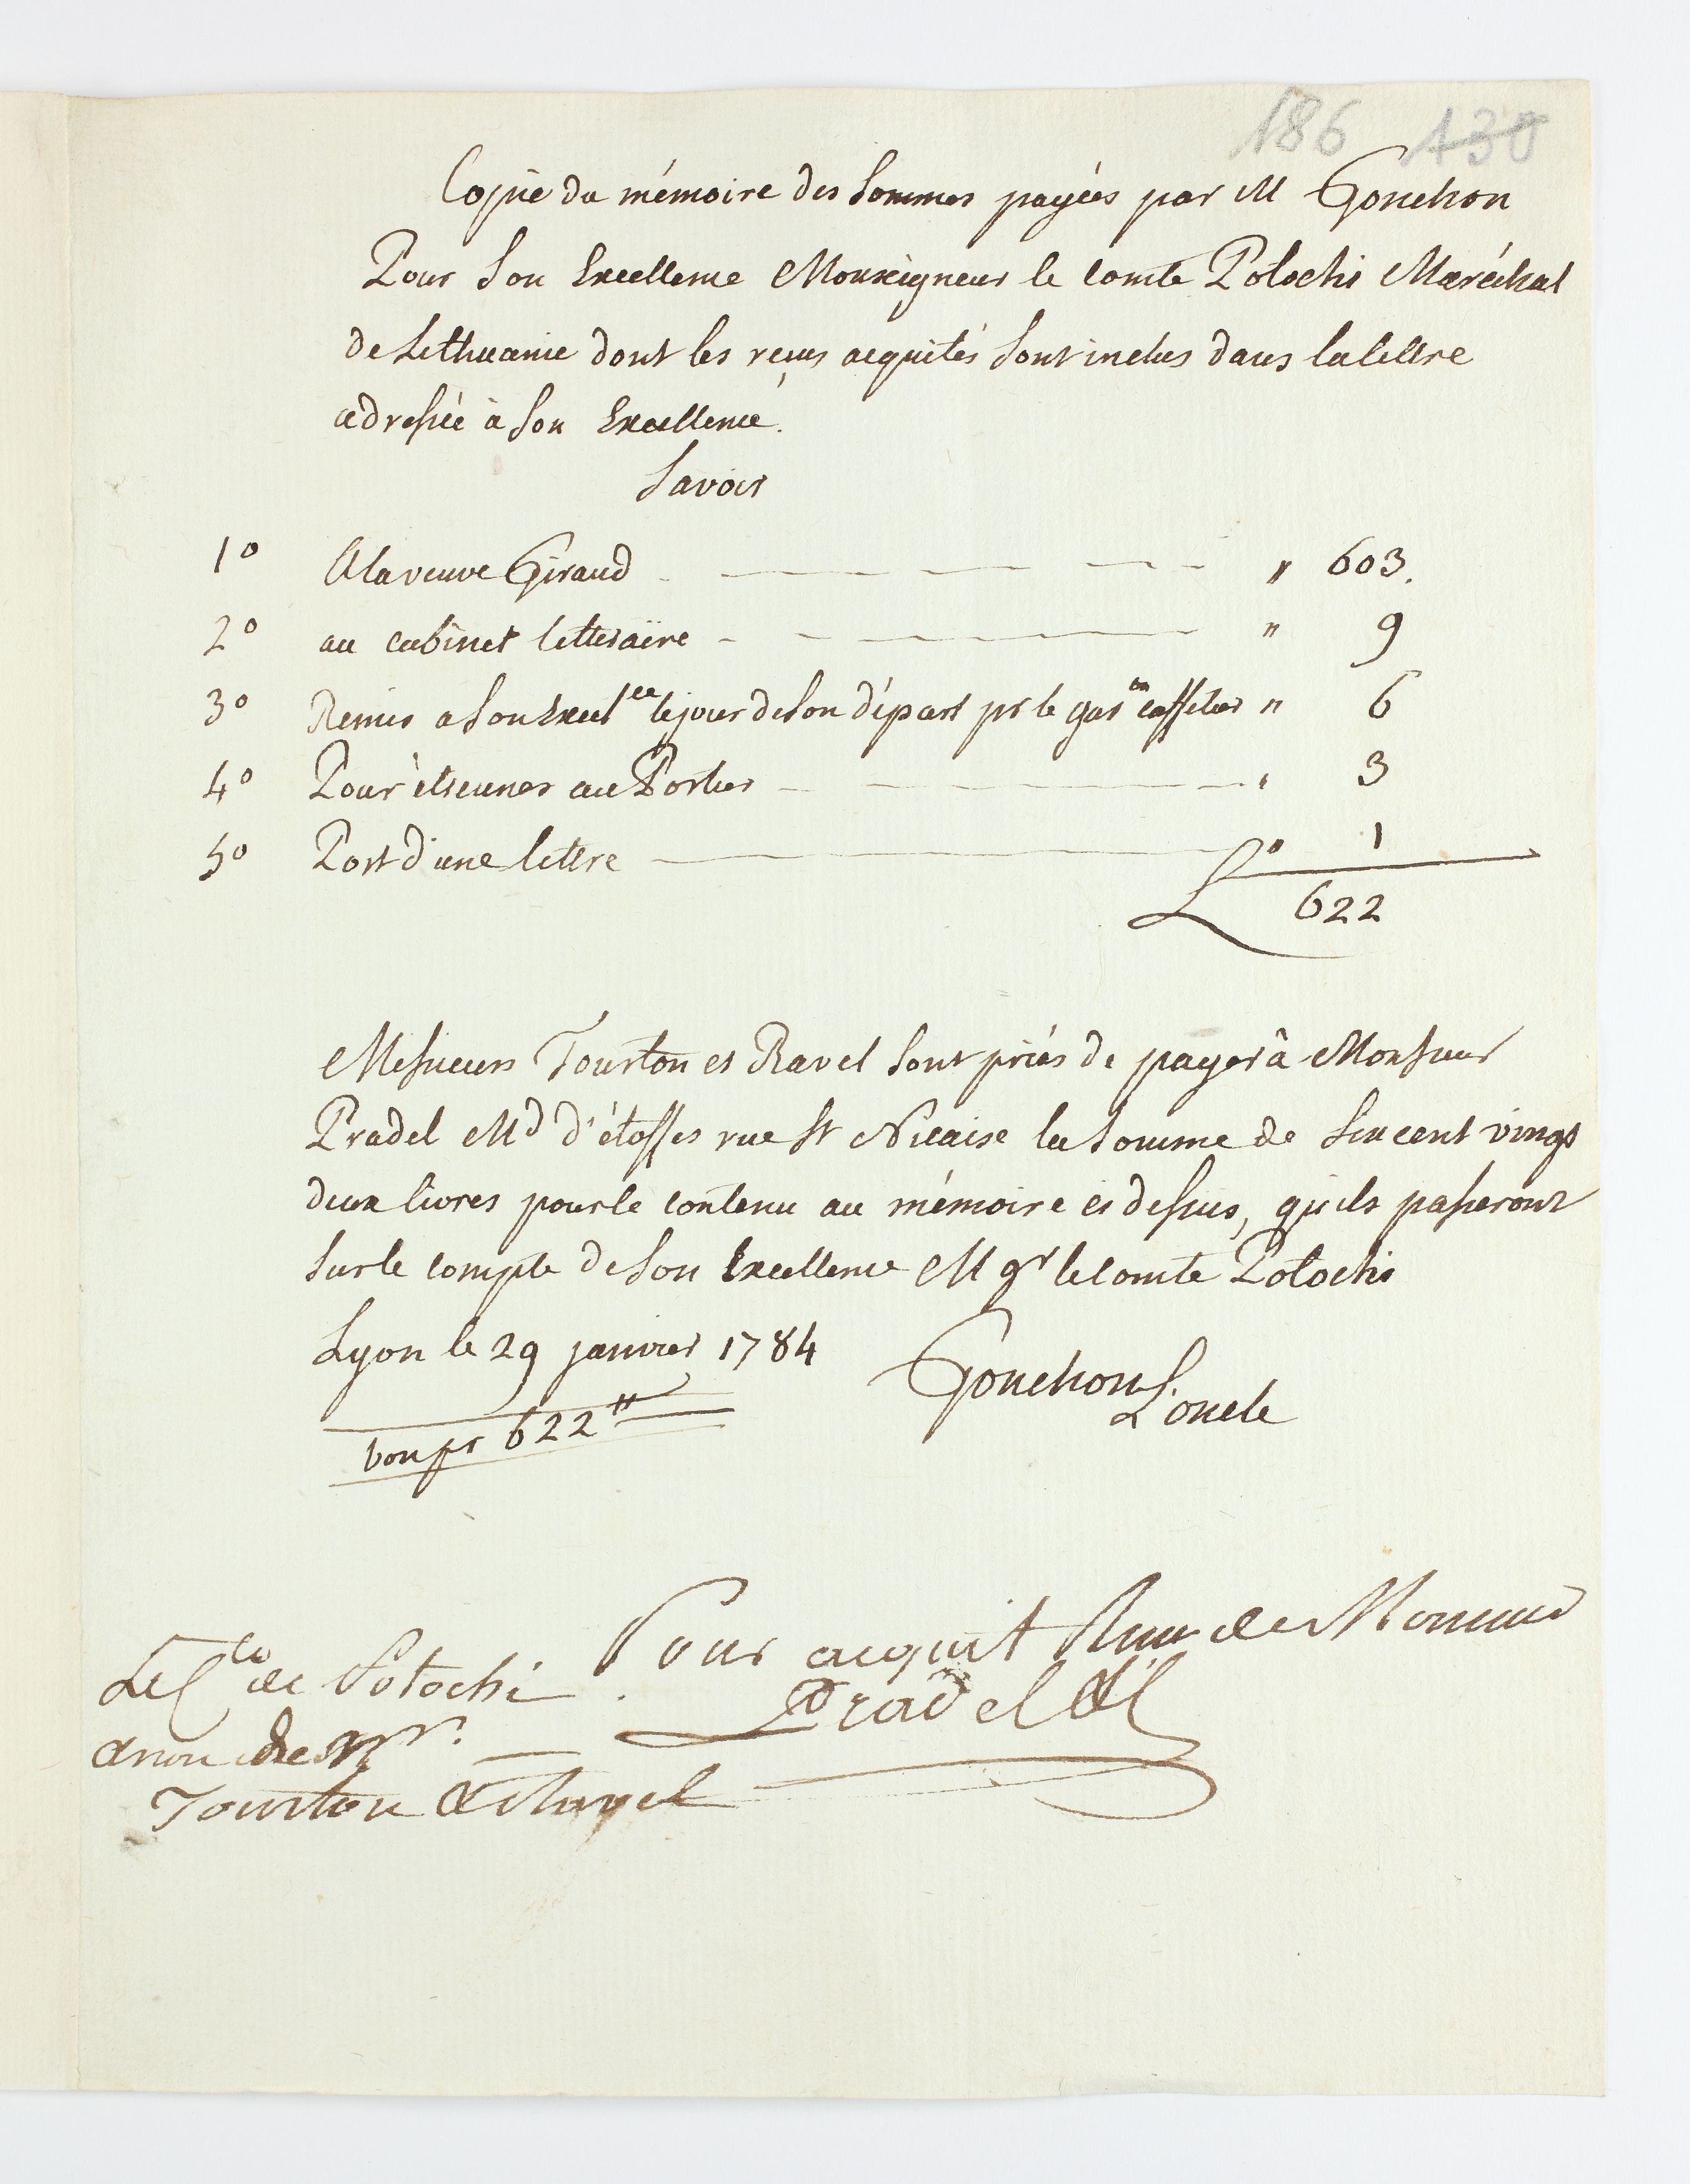 186 130
Copie du mémoire des Sommes payées par M Gonchon
Pour Son Excellence Monseigneur le comte Potocki Maréchal
de Lethuanie dont les reçus acquités Sont inclus dans la lettre
adressée à Son Excellence.
Savoir
1º A la veuve Giraud " 603.
2º au cabinet letteraire " 9
3º Remis a Son Excel ce le jour de Son départ pr le garçon caffetier " 6
4º Pour étrennes au Portier " 3
5º Port d'une lettre " 1
L 622
Messieurs Tourton et Ravel Sont priés de payer à Monsieur
Pradel Md d'étoffes rue St Nicaise la Somme de Six cent vingt
deux livres pour le contenu au mémoire ci dessus, qu'ils passeront
Sur le compte de Son Excellence M gr le comte Potocki
Lyon le 29 janvier 1784
Gonchon
L'oncle
bon pr 622 ⁺⁺
Pour acquit
Le C te de Potocki Pradel
de Mrs.
Tourton & Ravel